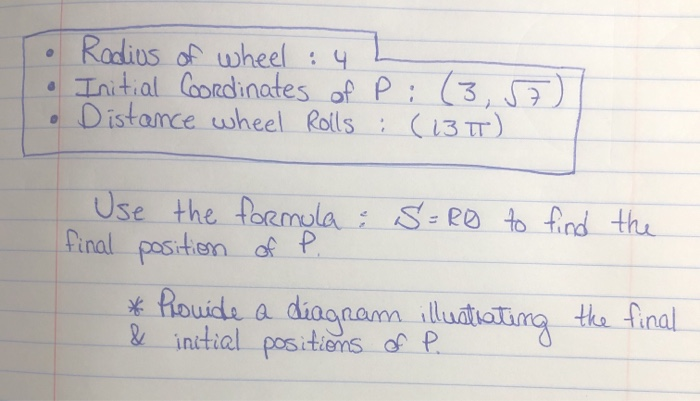 • Radius of wheel : 4
• Initial Coordinates of P : (3, √7)
• Distance wheel Rolls : (13π)
Use the formula : S = RΘ to find the
final position of P.
* Provide a diagram illustrating the final
& initial positions of P.